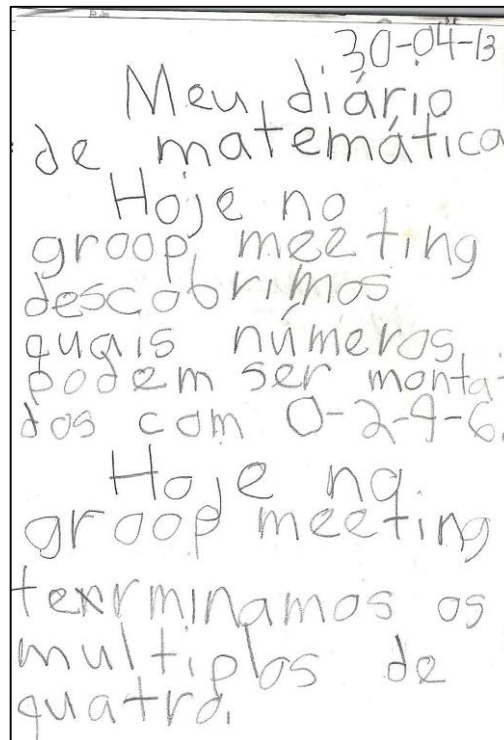 30-04-13
Meu diário
de matemática
Hoje no
groop meeting
descobrimos
quais números
podem ser monta-
dos com 0-2-4-6.
Hoje no
groop meeting
terminamos os
multiplos de
quatro.